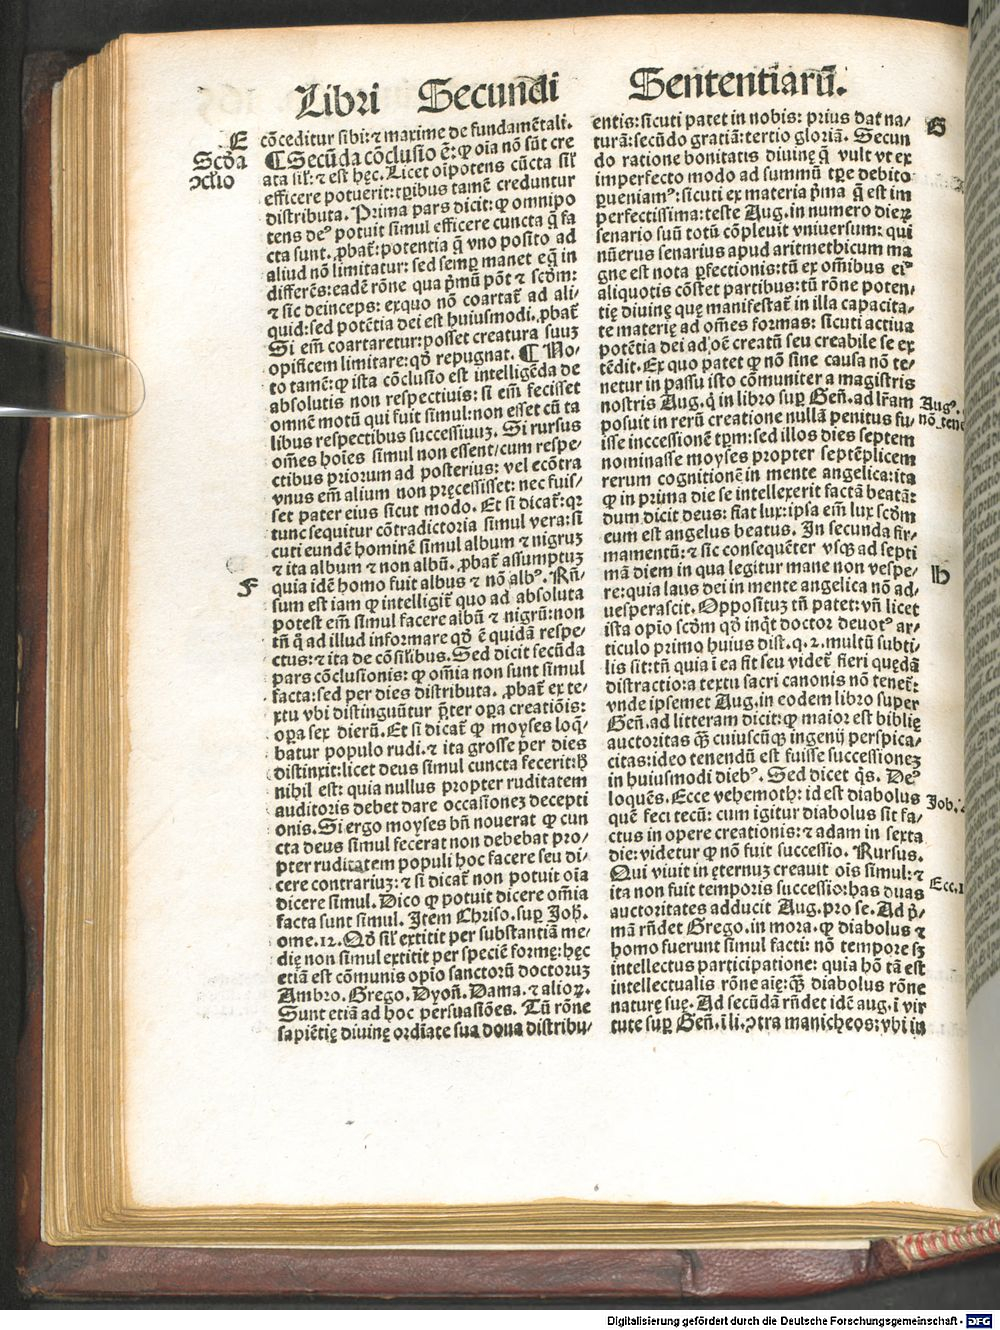 Libri Secundi
Sententiarū.
E
Scd̄a
ↄclīo
cōceditur sibi: ⁊ maxime de fundamētali.
¶ Secūda cōclusio ē: ꝙ oīa nō sūt cre
ata sil̄: ⁊ est hęc. Licet oīpotens cūcta sil̄
efficere potuerit: tꝑibus tamē creduntur
distributa. Prima pars dicit: ꝙ omnipo
tens deꝰ potuit simul efficere cuncta q̄ fa
cta sunt. ꝓbat̄: potentia q̄ vno posito ad
aliud nō limitatur: sed semꝑ manet eq̄ in
differēs: eadē rōne qua p̄mū pōt ⁊ scd̄m:
⁊ sic deinceps: exquo nō coartat̄ ad ali-
quid: sed potētia dei est huiusmodi. ꝓbat̄
Si em̄ coartaretur: posset creatura suuꝫ
opificem limitare: qd̄ repugnat. ¶ No-
to tamē: ꝙ ista cōclusio est intelligēda de
absolutis non respectiuis: si em̄ fecisset
omnē motū qui fuit simul: non esset cū ta
libus respectibus successiuuꝫ. Si rursus
om̄es hoīes simul non essent / cum respe-
ctibus priorum ad posterius: vel ecōtra
vnus em̄ alium non pręcessisset: nec fuis-
set pater eius sicut modo. Et si dicat̄: qꝛ
tunc sequitur cōtradictoria simul vera: si
cuti eundē hominē simul album ⁊ nigruꝫ
⁊ ita album ⁊ non albū. ꝓbat̄ assumptuꝫ
F
quia idē homo fuit albus ⁊ nō albꝰ. Rn̄-
sum est iam ꝙ intelligit̄ quo ad absoluta
potest em̄ simul facere albū ⁊ nigrū: non
tn̄ q̄ ad illud informare qd̄ ē quidā respe-
ctus: ⁊ ita de cōsil̄ibus. Sed dicit secūda
pars cōclusionis: ꝙ om̄ia non sunt simul
facta: sed per dies distributa. ꝓbat̄ ex te-
xtu vbi distinguūtur p̄ter oꝑa creatiōis:
oꝑa sex dierū. Et si dicat̄ ꝙ moyses loq̄-
batur populo rudi. ⁊ ita grosse per dies
distinxit: licet deus simul cuncta fecerit: hꝰ
nihil est: quia nullus propter ruditatem
auditoris debet dare occasioneꝫ decepti
onis. Si ergo moyses bn̄ nouerat ꝙ cun
cta deus simul fecerat non debebat pro-
pter ruditatem populi hoc facere seu di-
cere contrariuꝫ: ⁊ si dicat̄ non potuit oīa
dicere simul. Dico ꝙ potuit dicere om̄ia
facta sunt simul. Item Chriso. suꝑ Joh̄.
ome. 12. Qd̄ sil̄ extitit per substantiā me-
dię non simul extitit per speciē formę: hęc
etiā est cōmunis opio sanctorū doctoruꝫ
Ambro. Grego. Dyon̄. Dama. ⁊ alioꝝ.
Sunt etiā ad hoc persuasiōes. Tū rōne
sapiētię diuinę ordiate sua dona distribu-
G
entis: sicuti patet in nobis: prius dat na-
turā: secūdo gratiā: tertio gloriā. Secun
do ratione bonitatis diuinę q̄ vult vt ex
imperfecto modo ad summū tꝑe debito
ꝑueniamꝰ: sicuti ex materia p̄ma q̄ est im
perfectissima: teste Aug. in numero dieꝝ
senario suū totū cōpleuit vniuersum: qui
nūerus senarius apud aritmethicum ma
gne est nota ꝑfectionis: tū ex om̄ibus eiꝰ
aliquotis cōstet partibus: tū rōne poten-
tię diuinę quę manifestat̄ in illa capacita-
te materię ad om̄es formas: sicuti actiua
potētia dei ad oē creatū seu creabile se ex
tēdit. Ex quo patet ꝙ nō sine causa nō te-
netur in passu isto cōmuniter a magistris
nostris Aug. q̄ in libro suꝑ Gen̄. ad lr̄am
Augꝰ.
nō tene
posuit in rerū creatione nullā penitus fu-
isse inccessionē tꝑm: sed illos dies septem
nominasse moyses propter septēplicem
rerum cognitionē in mente angelica: ita
ꝙ in prima die se intellexerit factā beatā:
dum dicit deus: fiat lux: ipsa em̄ lux scd̄m
eum est angelus beatus. In secunda fir-
mamentū: ⁊ sic consequēter vsqꝫ ad septi
H
mā diem in qua legitur mane non vespe-
re: quia laus dei in mente angelica nō ad-
uesperascit. Oppositus tn̄ patet: vn̄ licet
ista opio scd̄m qd̄ inq̄t doctor deuotꝰ ar-
ticulo primo huius dist. q. 2. multū subti-
lis sit: tn̄ quia ī ea fit seu videt̄ fieri quędā
distractio: a textu sacri canonis nō tenet̄:
vnde ipsemet Aug. in eodem libro super
Gen̄. ad litteram dicit: ꝙ maior est biblię
auctoritas qꝫ̄ cuiuscūqꝫ ingenij perspica-
citas: ideo tenendū est fuisse successioneꝫ
in huiusmodi diebꝰ. Sed dicet q̄s. Deꝰ
loquēs. Ecce vehemoth: id est diabolus
Job.
quē feci tecū: cum igitur diabolus sit fa-
ctus in opere creationis: ⁊ adam in sexta
die: videtur ꝙ nō fuit successio. Rursus.
Qui viuit in ęternuꝫ creauit oīs simul: ⁊
Ecc. 1
ita non fuit temporis successio: has duas
auctoritates adducit Aug. pro se. Ad p̄-
mā rn̄det Grego. in mora. ꝙ diabolus ⁊
homo fuerunt simul facti: nō tempore sꝫ
intellectus participatione: quia hō tā est
intellectualis rōne aię: qꝫ̄ diabolus rōne
naturę suę. Ad secūdā rn̄det idē aug. ī vir
tute suꝑ Gen̄. ī li. ↄtra manicheos: vbi in